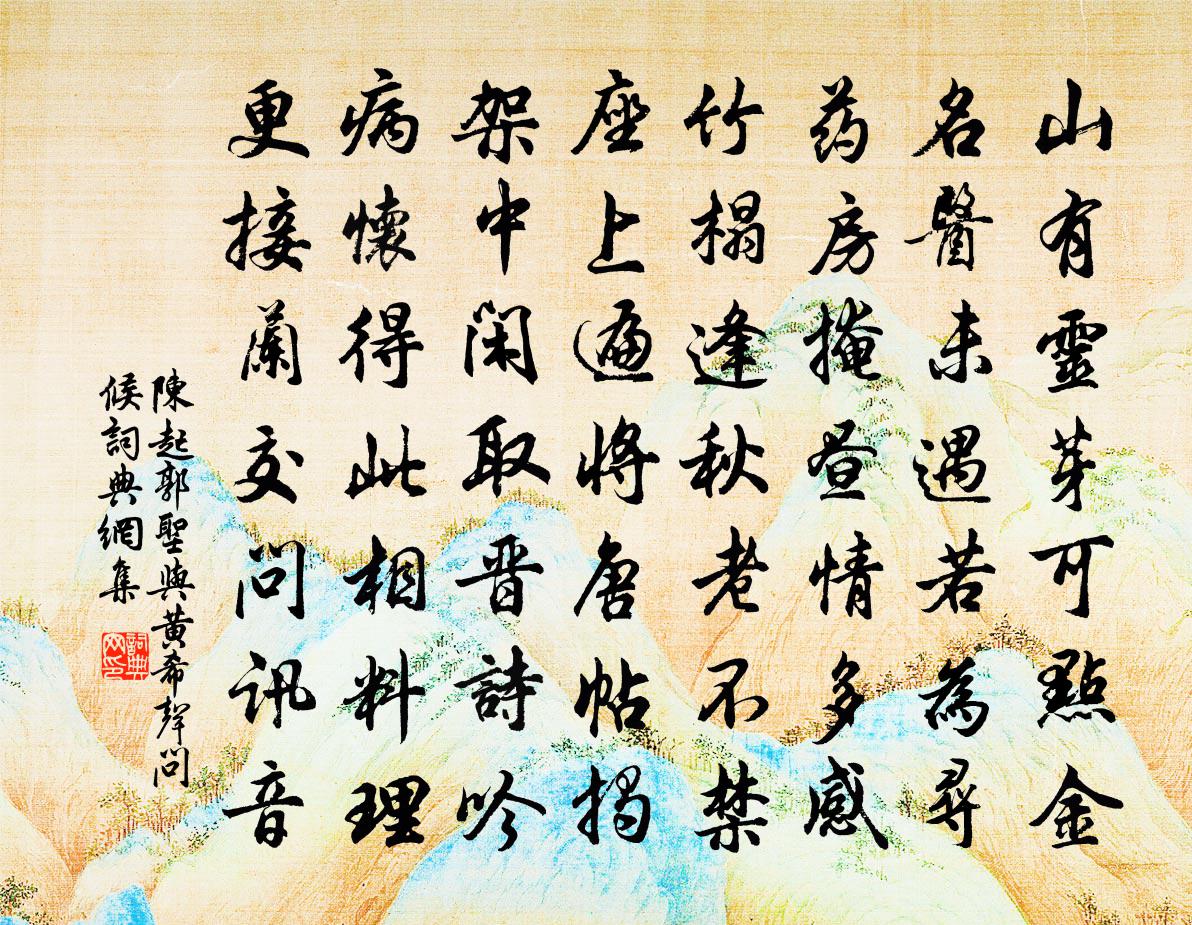 山有靈芽可點金
名醫未遇若為尋
药房掩昼情多感
竹榻逢秋老不禁
座上遍將唐帖搨
架中閑取晋詩吟
病懷得此相料理
更接蘭交問訊音
陳起郭聖與黃希聲問
候詞典網集
詞典网印